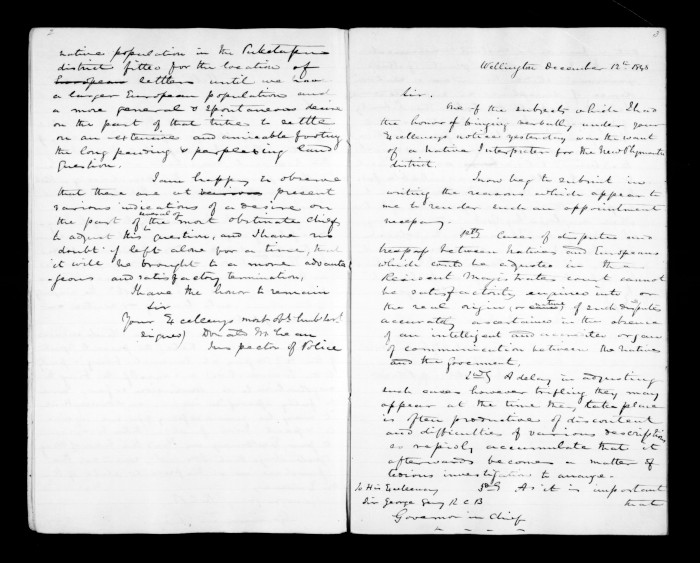 2
native population in the Puketapu
district fitted for the location of
European settlers until we have
a larger European population and
a more general & spontaneous desire
on the part of that tribe to settle
on an extensive and amicable footing
the long pending & perplexing land
question.
I am happy to observe
that there are at various present
various indications of a desire on
the part of the most obstinate chiefs
to adjust this question, and I have no
doubt if left alone for a time, that
it will be brought to a more advanta
geous and satisfactory termination,
I have the honor to remain
Sir
Your Excellencys most obt humble sert
signed) Donald McLean
Inspector of Police
3
Wellington December 12th 1848
Sir.
One of the subjects which I had
the honor of bringing verbally under your
Excellencys notice yesterday was the want
of a Native Interpreter for the New Plymouth
district.
I now beg to submit in
writing the reasons which appear to
me to render such an appointment
necessary.
1stly Cases of disputes and
trespass between Natives and Europeans
which could be adjusted in the
Resident Magistrates court cannot
be satisfactorily enquired into or
the real origin (or nature) of such disputes
accurately ascertained in the absence
of an intelligent and accurate organ
of communication between the Natives
and the Government.
2ndly A delay in adjusting
such cases however trifling they may
appear at the time they take place
is often productive of discontent
and difficulties of various descriptions
so rapidly accumulate that it
afterwards becomes a matter of
tedious investigation to arrange.
3rdly As it is important
that
To His Excellency
Sir George Grey K C B
Governor in Chief